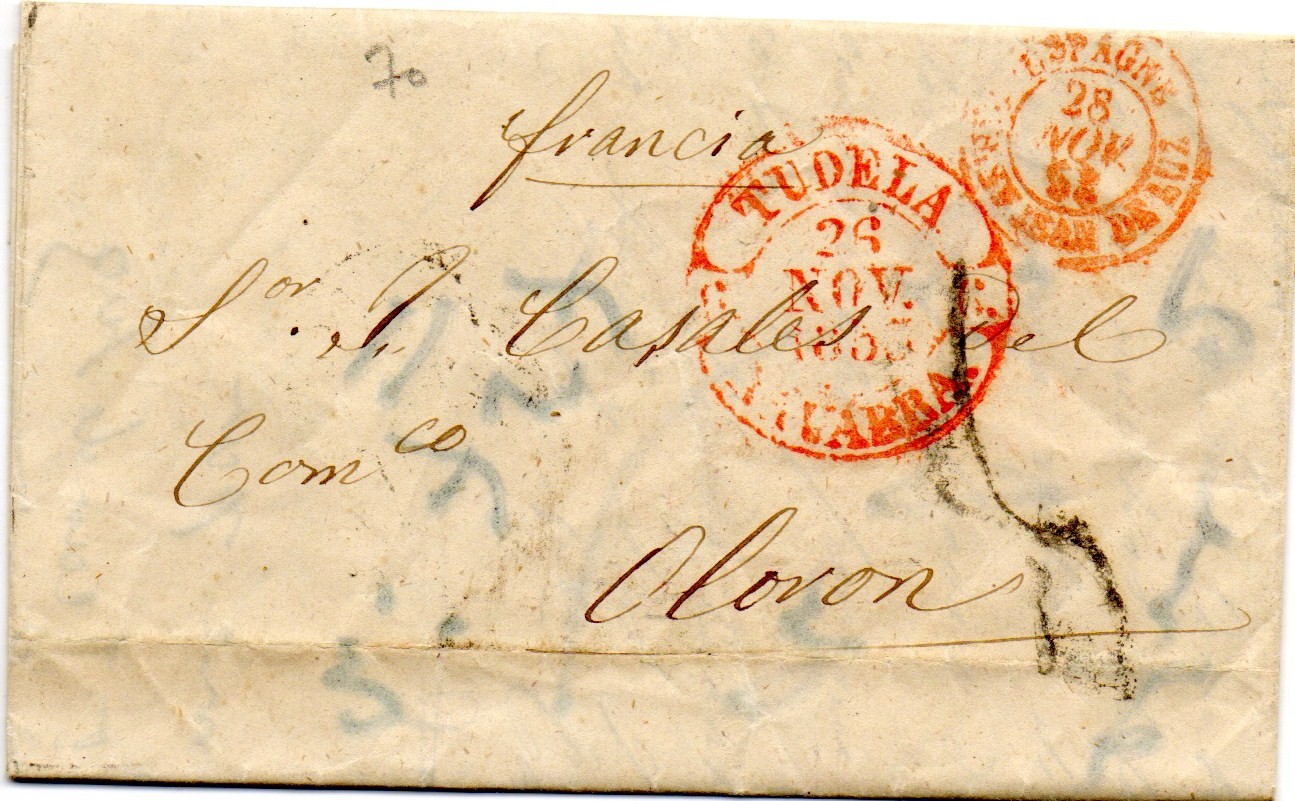 70
francia
ESPAGNE
28
NOV.
ST JEAN DE LUZ
TUDELA
26
NOV.
1853
NAVARRA.
Sor. J. Casales del
Comco
Oloron